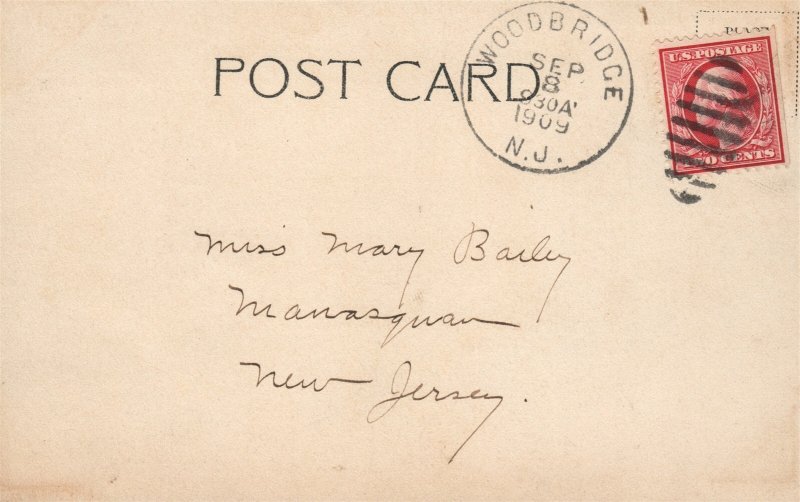 POST CARD
WOODBRIDGE
SEP
8
930A
1909
N.J.
U.S.POSTAGE
CENTS
Miss Mary Bailey
Manasquan
New Jersey.